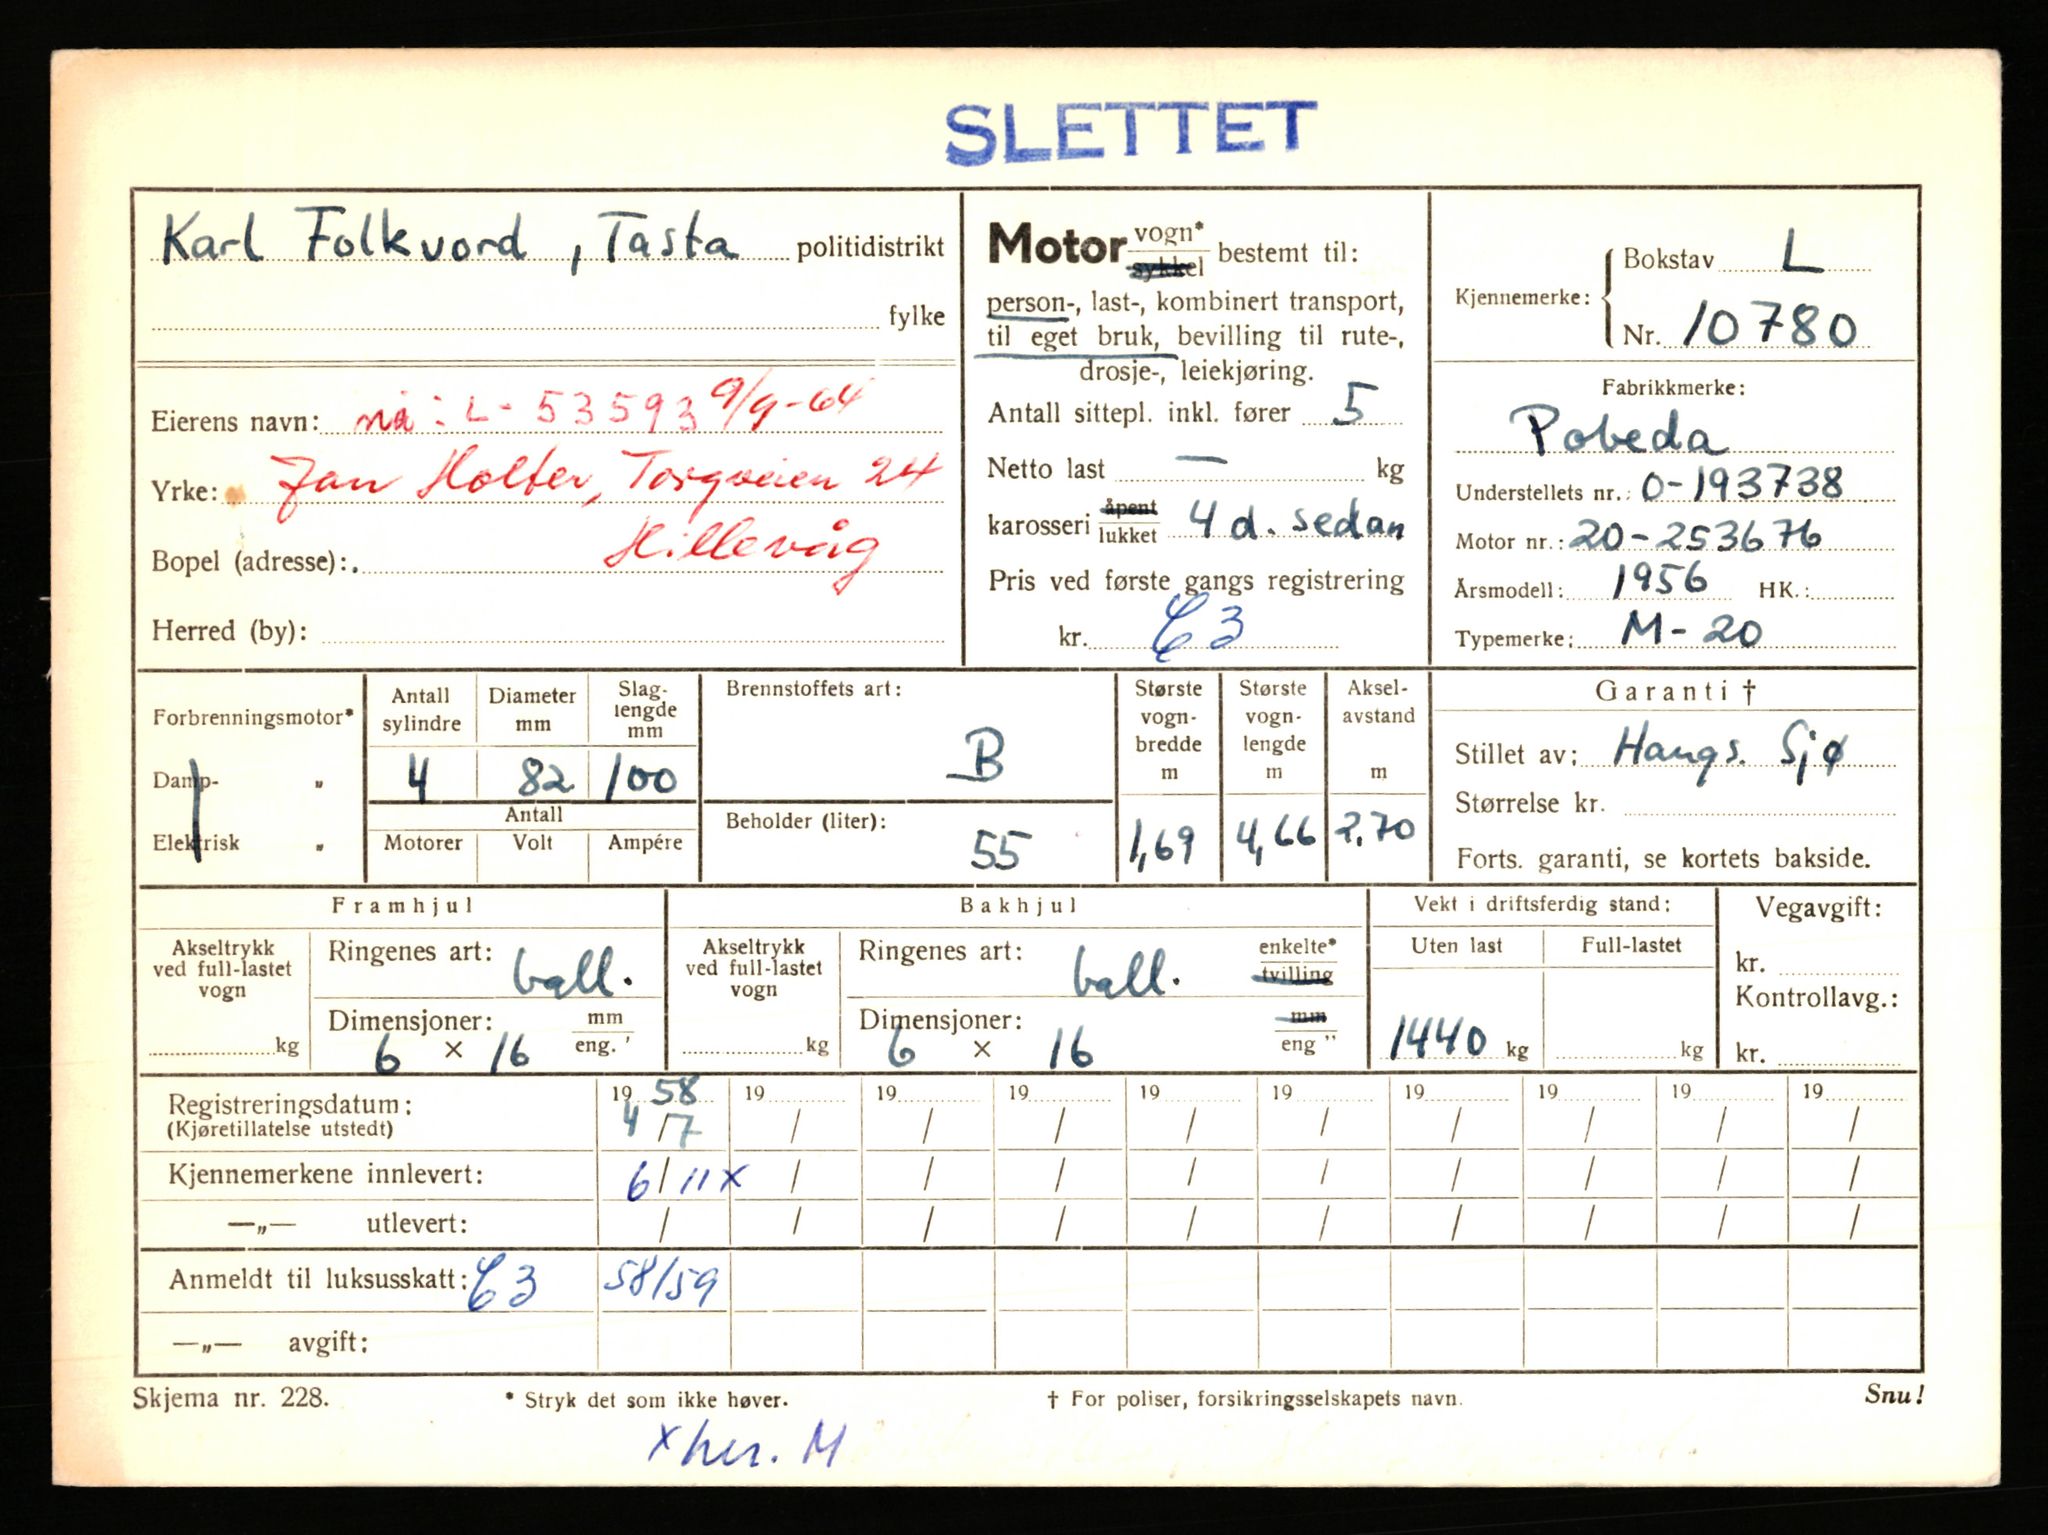 SLETTET
Karl Folkvord, Tasta politidistrikt
fylke
Eierens navn: nå: L-53593 9/9-64
Yrke: Jan Holter, Torgveien 24
Bopel (adresse): Hillevåg
Herred (by):
Motor vogn* sykkel bestemt til:
person-, last-, kombinert transport,
til eget bruk, bevilling til rute-,
drosje-, leiekjøring.
Antall sittepl. inkl. fører 5
Netto last — kg
karosseri åpent lukket 4 d. sedan
Pris ved første gangs registrering
kr. C3
Kjennemerke: Bokstav L
Nr. 10780
Fabrikkmerke:
Pobeda
Understellets nr.: 0-193738
Motor nr.: 20-253676
Årsmodell: 1956 HK.:
Typemerke: M-20
Forbrenningsmotor*
Damp- "
Elektrisk "
Antall sylindre
Diameter mm
Slaglengde mm
4 82 100
Antall
Motorer Volt Ampére
Brennstoffets art:
B
Beholder (liter):
55
Største vognbredde m
1,69
Største vognlengde m
4,66
Akselavstand m
2,70
Garanti †
Stillet av: Haugs. Sjø
Størrelse kr.
Forts. garanti, se kortets bakside.
Framhjul
Akseltrykk ved full-lastet vogn
kg
Ringenes art: ball.
Dimensjoner: mm eng. '
6 × 16
Bakhjul
Akseltrykk ved full-lastet vogn
kg
Ringenes art: ball. enkelte* tvilling
Dimensjoner: mm eng "
6 × 16
Vekt i driftsferdig stand:
Uten last Full-lastet
1440 kg kg
Vegavgift:
kr.
Kontrollavg.:
kr.
Registreringsdatum: 19 58 19 19 19 19 19 19 19 19 19
(Kjøretillatelse utstedt) 4/7 / / / / / / / / /
Kjennemerkene innlevert: 6/11 x / / / / / / / / /
—„— utlevert: / / / / / / / / / /
Anmeldt til luksusskatt: C3 58/59
—„— avgift:
Skjema nr. 228. * Stryk det som ikke høver. † For poliser, forsikringsselskapets navn. Snu!
x her. M